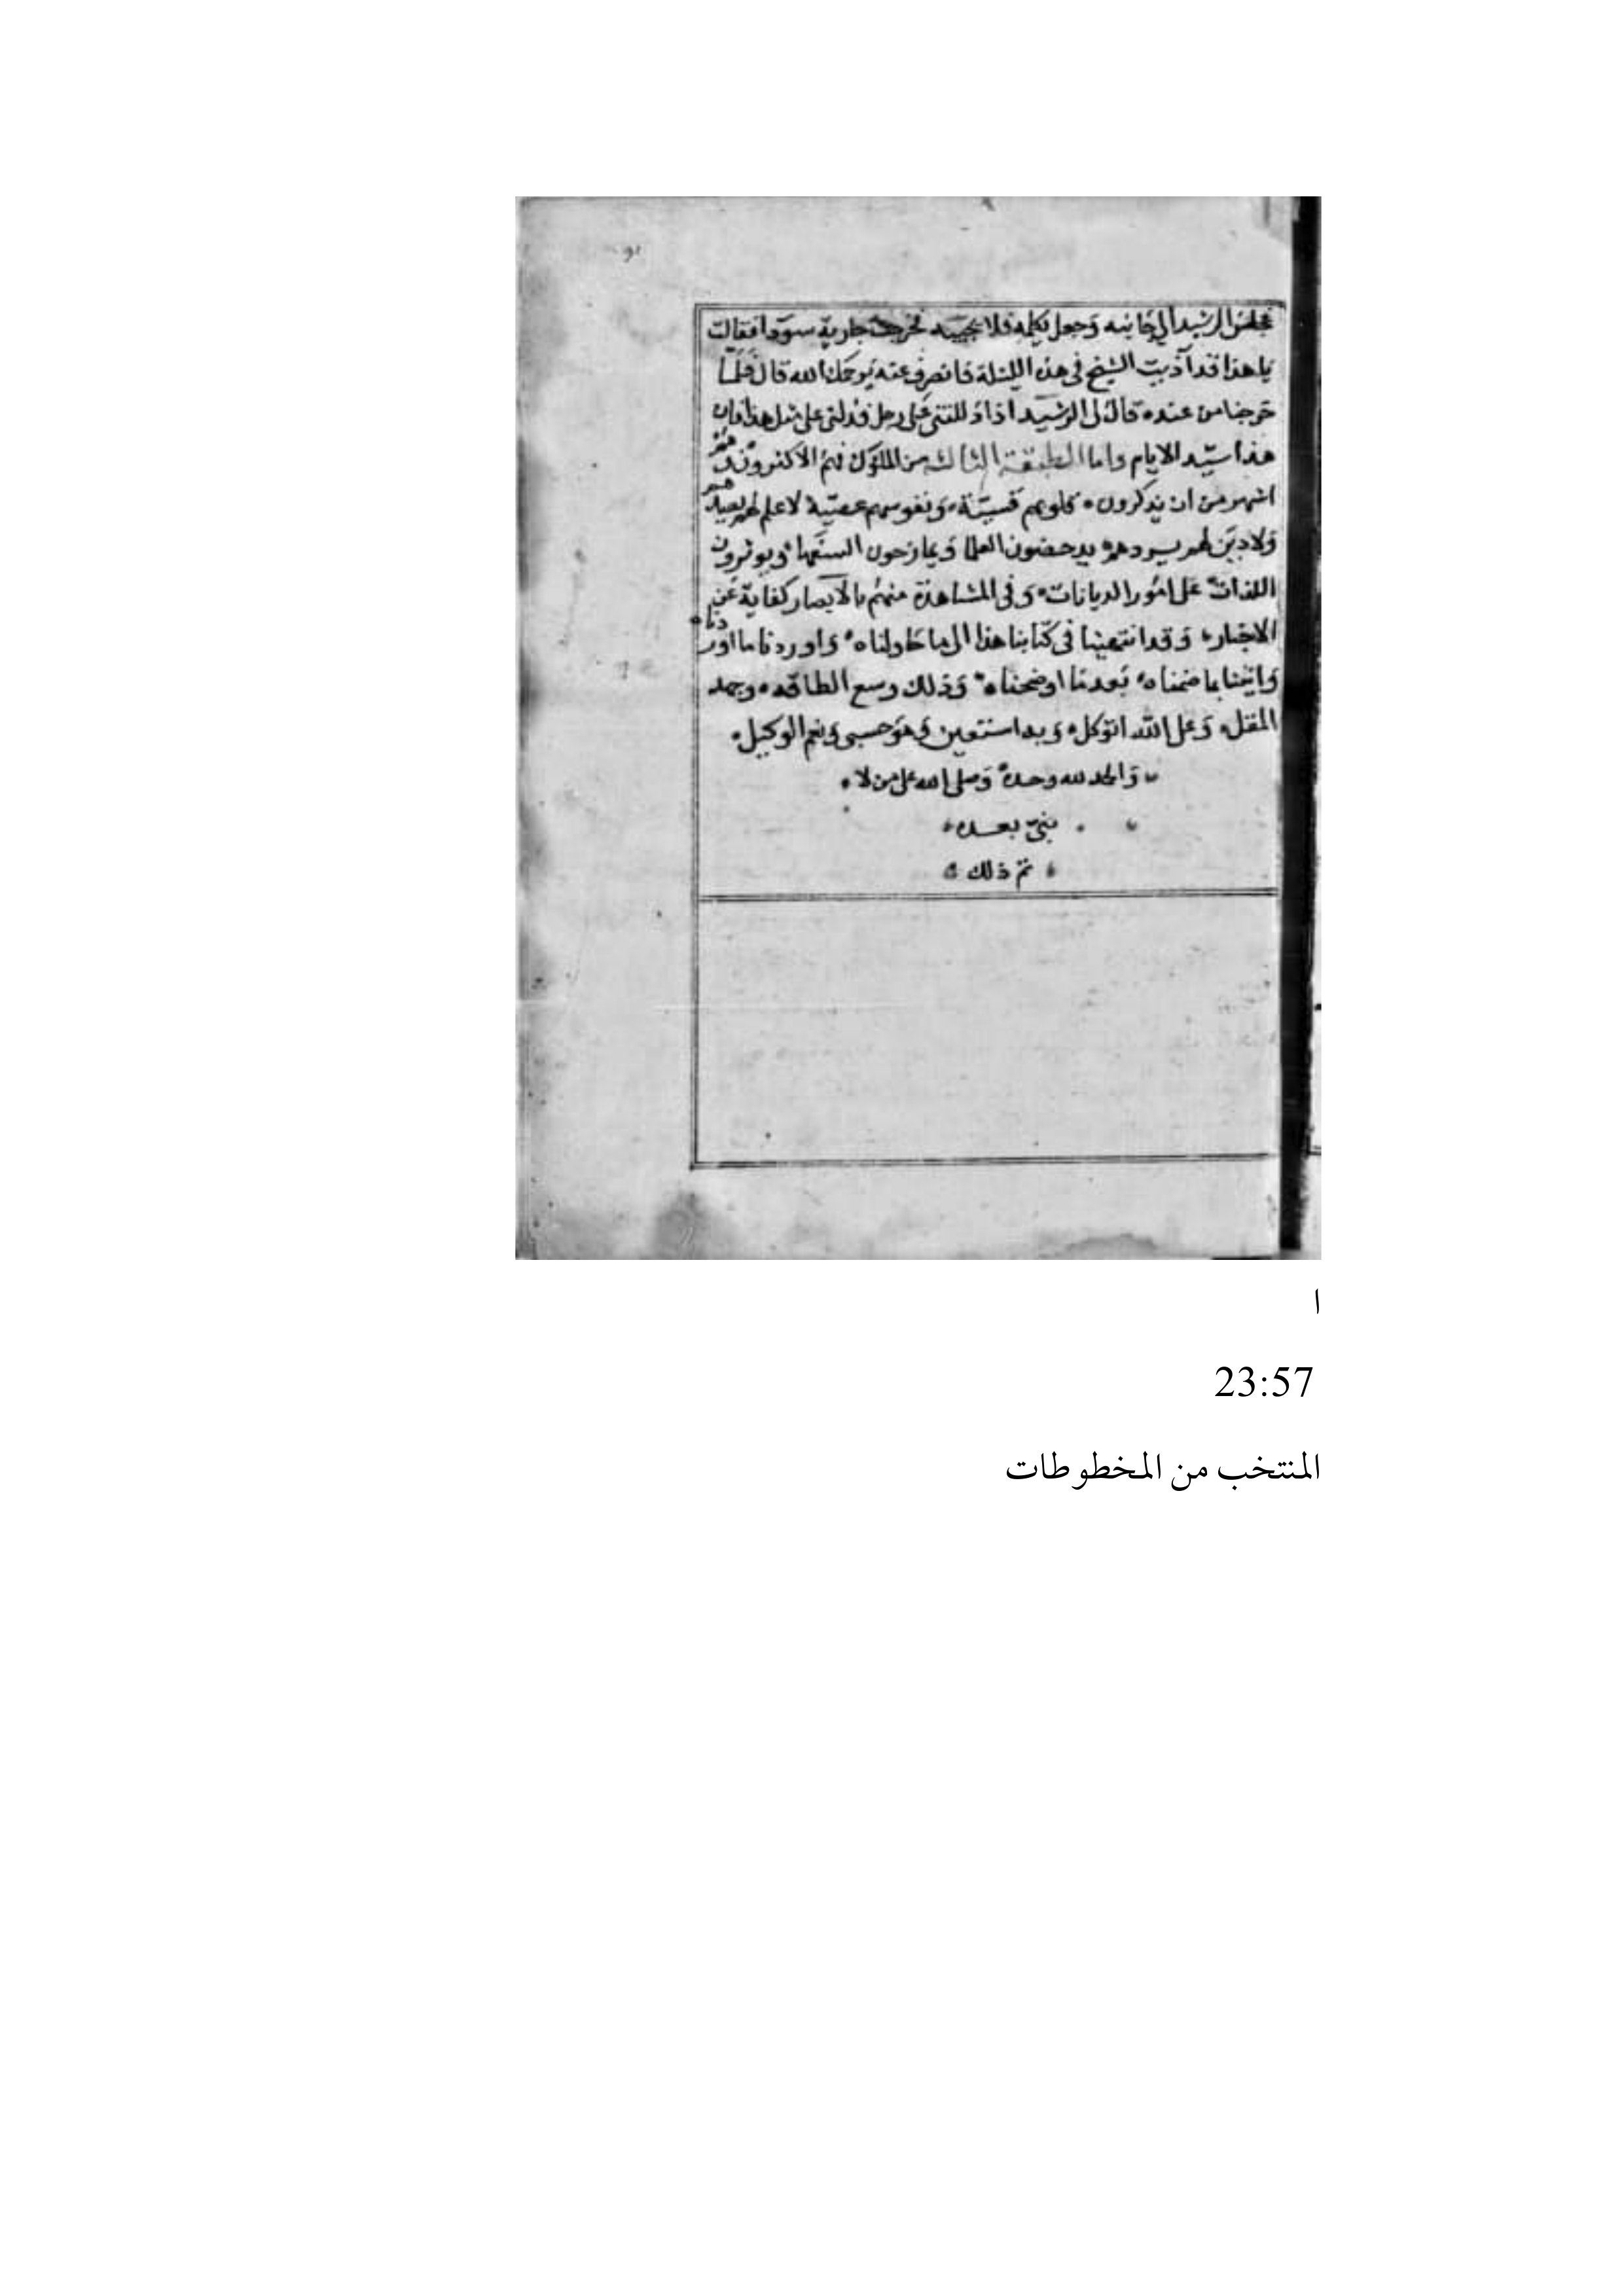 فجلس الرشيد الي جانبه وجعل يكلمه فلا يجيبه فخرجت جارية سودا فقالت
يا هذا قد آذيت الشيخ في هذه الليلة فانصرف عنه يرحمك الله قال فلما
خرجنا من عنده قال لى الرشيد اذا دللتنى على رجل فدلنى على مثل هذا فان
هذا سيد الايام واما الطبقة الثالثه من الملوك فهم الاكثرون هم
اشهر من ان يذكرون قلوبهم قسية ونفوسهم عصية لا علم لهم يصيدهم
ولا دين لهم يسودهم يدحضون العلما ويمازحون السفها ويوثرون
اللذات على امور الديانات وفى المشاهدة منهم بالابصار كفاية عن
الاخبار وقد انتهينا فى كتابنا هذا الى ما حاولناه واوردنا ما اوردناه
واتينا بما ضمناه بعدما اوضحناه وذلك وسع الطاقه وجهد
المقل وعلى الله اتوكل وبه استعين وهو حسبى ونعم الوكيل
والحمد لله وحده وصلى الله على من لا
نبى بعده
تم ذلك
ا
23:57
المنتخب من المخطوطات